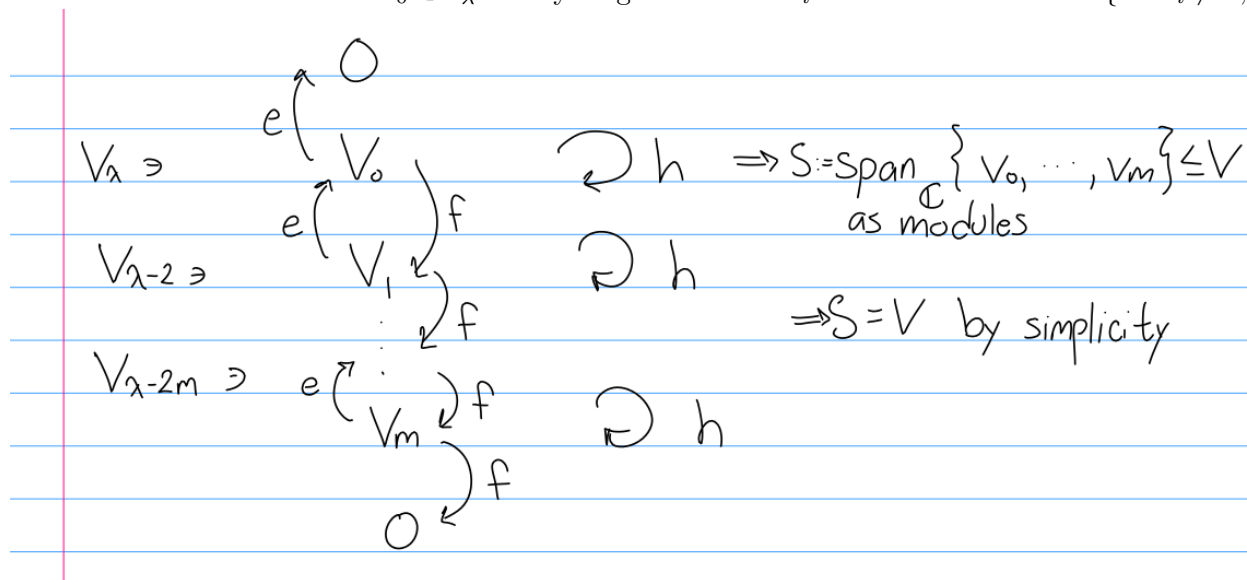 0
e
V_λ ∋ V_0 h ⇒ S:=span_ℂ { V_0, ⋯, V_m } ≤ V
as modules
e f
V_{λ-2} ∋ V_1 h
f
⇒ S = V by simplicity
V_{λ-2m} ∋ e f
V_m h
f
0